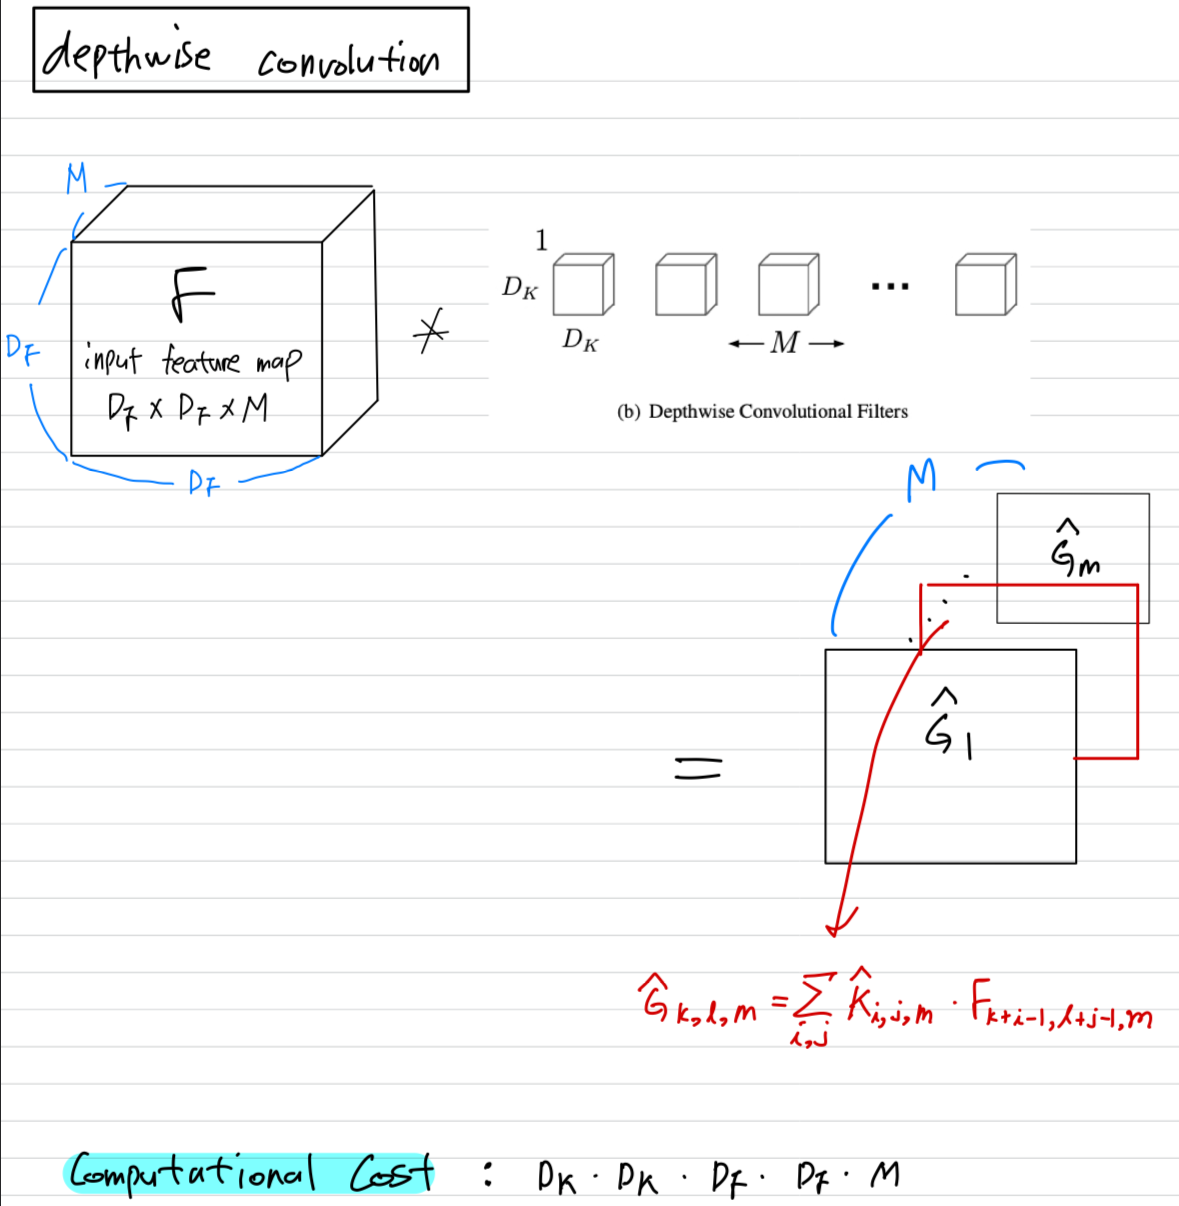 depthwise convolution
M
F
input feature map
D_F × D_F × M
D_F
D_F
*
1
D_K
D_K
...
← M →
(b) Depthwise Convolutional Filters
M
Ĝ_m
Ĝ_1
=
Ĝ_{k,l,m} = Σ_{i,j} K̂_{i,j,m} · F_{k+i-1,l+j-1,m}
Computational Cost : D_K · D_K · D_F · D_F · M